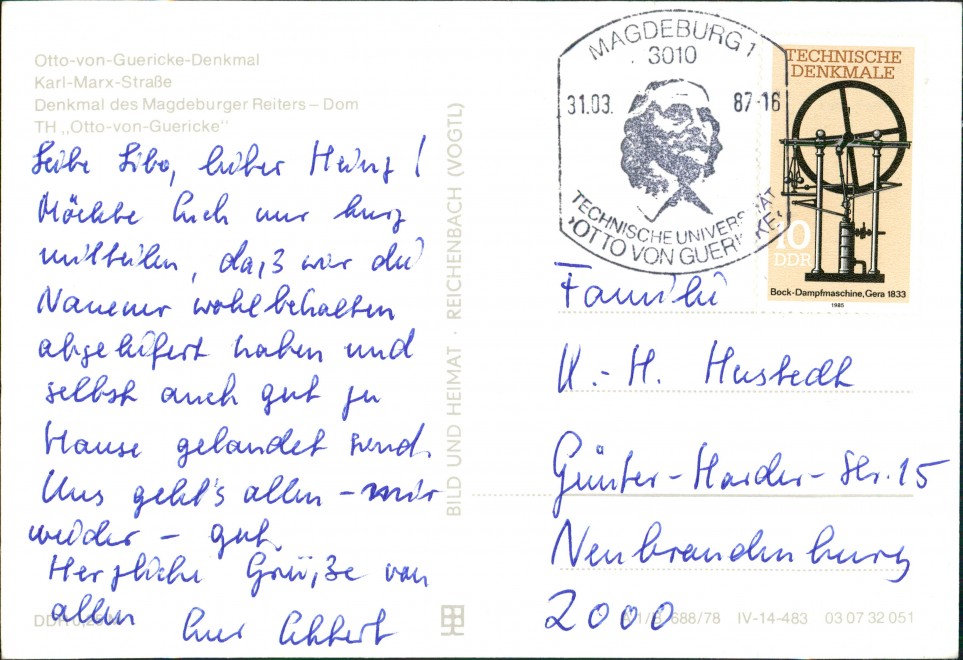 Otto-von-Guericke-Denkmal
Karl-Marx-Straße
Denkmal des Magdeburger Reiters – Dom
TH „Otto-von-Guericke"
Liebe Libo, lieber Heinz!
Möchte Euch nur kurz
mitteilen, daß wir die
Nauener wohlbehalten
abgeliefert haben und
selbst auch gut zu
Hause gelandet sind.
Uns geht's allen – mir
wieder – gut.
Herzliche Grüße von
allen
Euer
DDR
BILD UND HEIMAT · REICHENBACH (VOGTL)
MAGDEBURG 1
3010
31.03. 87-16
TECHNISCHE UNIVERSITÄT
"OTTO VON GUERICKE"
TECHNISCHE
DENKMALE
10
DDR
Bock-Dampfmaschine, Gera 1833
1985
Familie
K.-H. Hustedt
Günter-Harder-Str. 15
Neubrandenburg
2000
688/78 IV-14-483 03 07 32 051